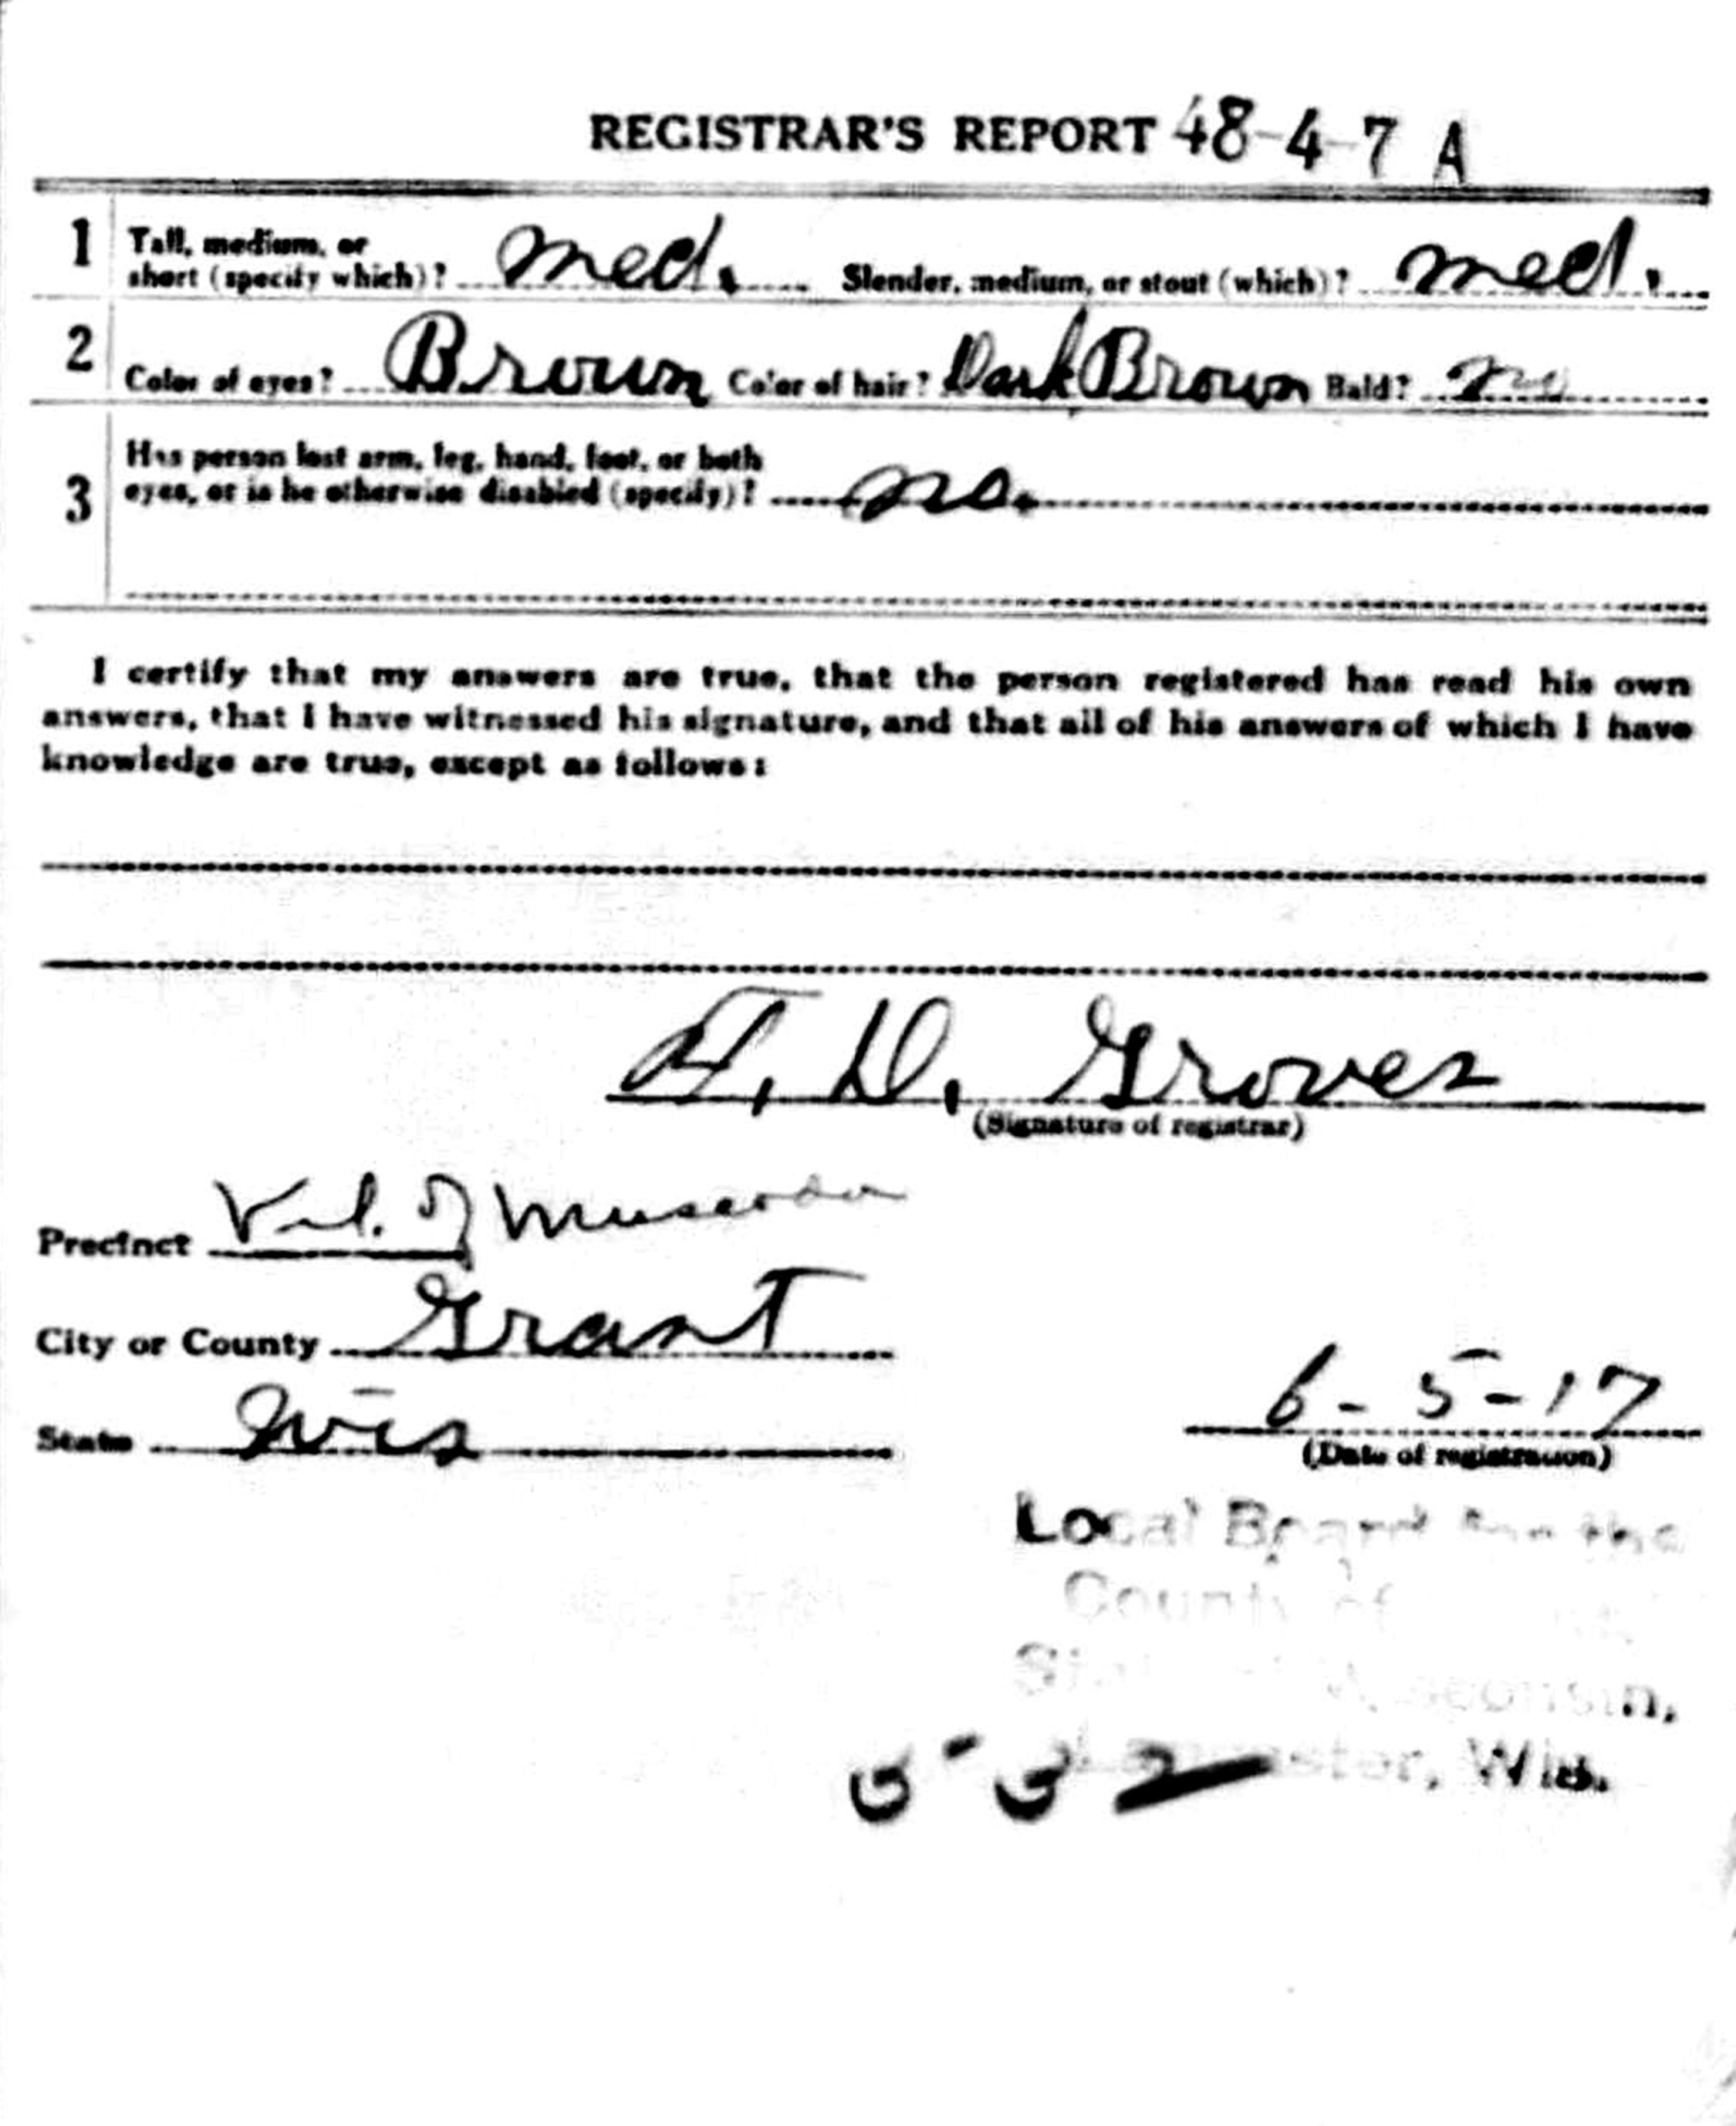 REGISTRAR'S REPORT 48-4-7 A
1 Tall, medium, or
short (specify which)? med. Slender, medium, or stout (which)? med.
2 Color of eyes? Brown Color of hair? Dark Brown Bald? no
Has person lost arm, leg, hand, foot, or both
3 eyes, or is he otherwise disabled (specify)? no.
I certify that my answers are true, that the person registered has read his own
answers, that I have witnessed his signature, and that all of his answers of which I have
knowledge are true, except as follows:
D. Groves
(Signature of registrar)
Precinct Vil. of Muscoda
City or County Grant
State Wis
6-5-17
(Date of registration)
Local Board for the
County of
Wisconsin,
Wis.